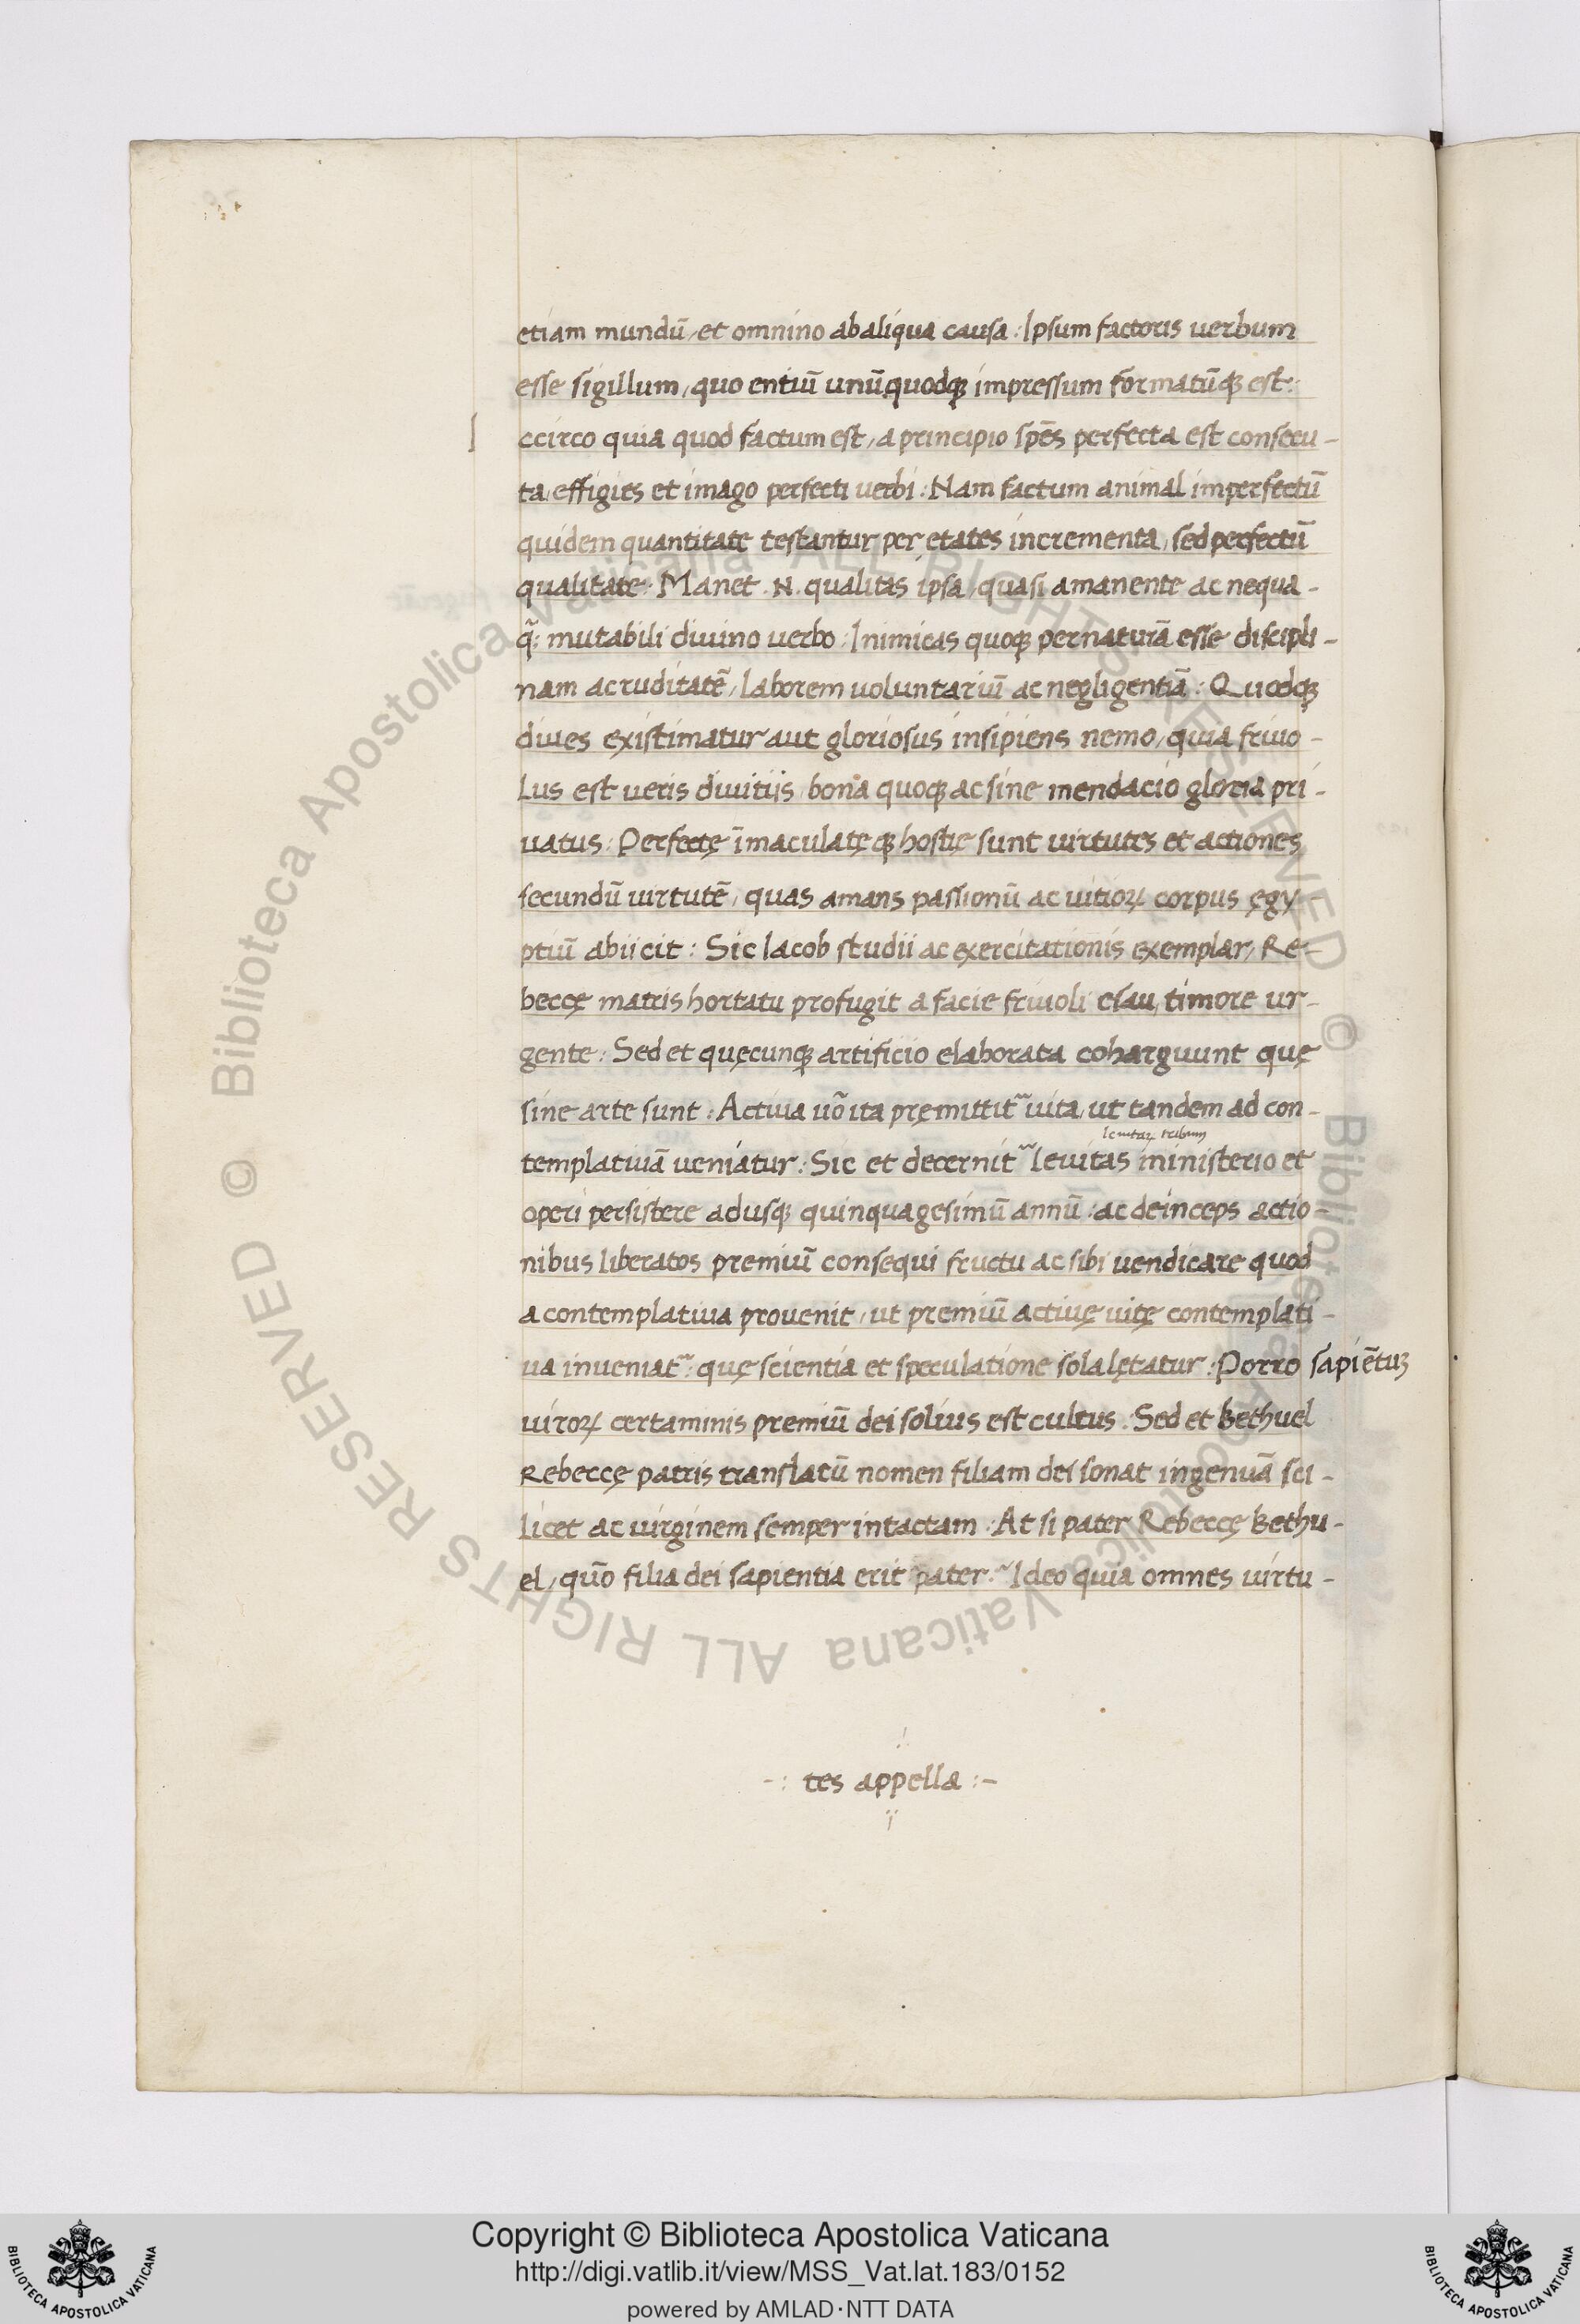 etiam mundū, et omnino ab aliqua causa: Ipsum factoris uerbum
esse sigillum, quo entiū unūquodqꝫ impressum formatūqꝫ est:
I ccirco quia quod factum est, a principio spēs perfecta est consecu-
ta, effigies et imago perfecti uerbi: Nam factum animal imperfectū
quidem quantitate testantur per etates incrementa, sed perfectū
qualitate: Manet .N. qualitas ipsa, quasi a manente ac nequa-
q̄: mutabili diuino uerbo: Inimicas quoqꝫ per naturā esse discipli-
nam ac ruditatē, laborem uoluntariū ac negligentiā: Quodqꝫ
diues existimatur aut gloriosus insipiens nemo, quia friuo-
lus est ueris diuitijs, bona quoqꝫ ac sine mendacio gloria pri-
uatus: Perfectę īmaculatęqꝫ hostię sunt uirtutes et actiones
secundū uirtutē, quas amans passionū ac uitioꝝ corpus ęgy-
ptiū abiicit: Sic Iacob studii ac exercitationis exemplar, Re-
beccę matris hortatu profugit a facie friuoli esau, timore ur-
gente: Sed et quęcunqꝫ artificio elaborata coharguunt quę
sine arte sunt: Actiua uō ita pręmittit᷑ uita, ut tandem ad con-
leuitaꝝ tribum
templatiuā ueniatur: Sic et decernit᷑ leuitas ministerio et
operi persistere adusqꝫ quinquagesimū annū: ac deinceps actio-
nibus liberatos premiū consequi fructu ac sibi uendicare quod
a contemplatiua prouenit, ut premiū actiuę uitę contemplati-
ua inueniat᷑: quę scientia et speculatione sola lętatur: Porro sapiētuꝫ
uiroꝝ certaminis premiū dei solius est cultus: Sed et Bethuel
Rebeccę patris translatū nomen filiam dei sonat ingenuā sci-
licet ac uirginem semper intactam: At si pater Rebeccę Bethu-
el, quō filia dei sapientia erit pater: Ideo quia omnes uirtu-
-: tes appella :-
© Biblioteca Apostolica Vaticana ALL RIGHTS RESERVED © Biblioteca Apostolica Vaticana ALL RIGHTS RESERVED
Copyright © Biblioteca Apostolica Vaticana
http://digi.vatlib.it/view/MSS_Vat.lat.183/0152
powered by AMLAD·NTT DATA
BIBLIOTECA APOSTOLICA VATICANA
BIBLIOTECA APOSTOLICA VATICANA